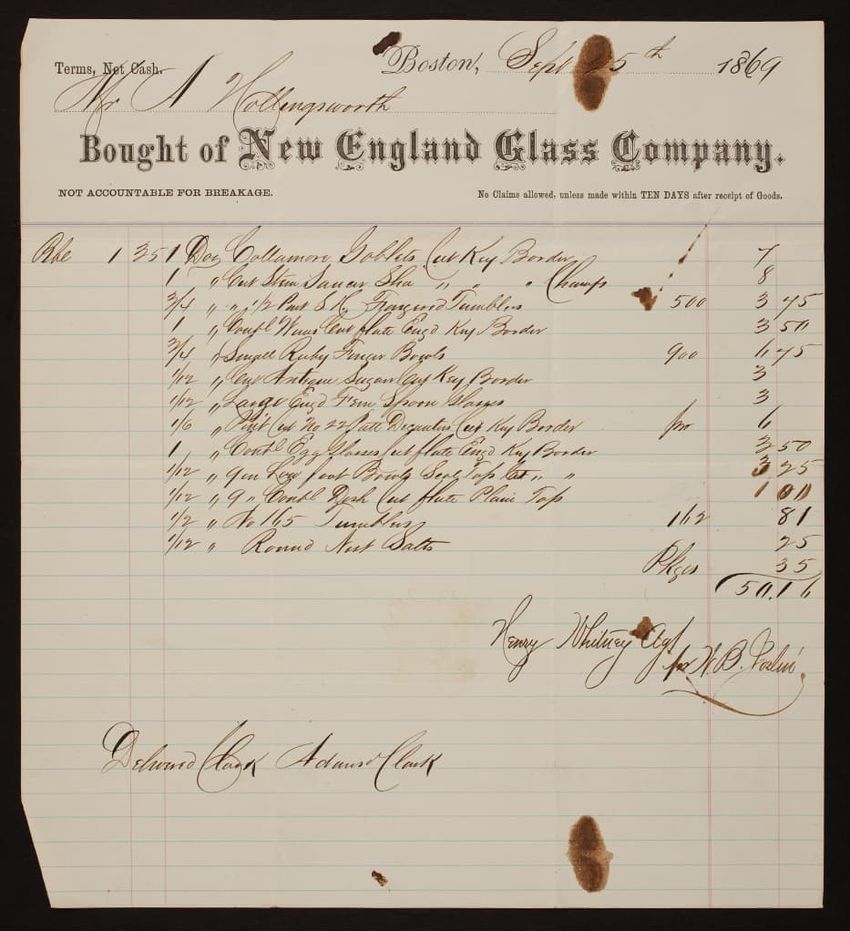 Terms, Net Cash. Boston, Sept 5th 1869
Mr A Hollingsworth
Bought of New England Glass Company.
NOT ACCOUNTABLE FOR BREAKAGE. No Claims allowed, unless made within TEN DAYS after receipt of Goods.
1 35 1 Doz Collamore Goblets Cut Key Border 7
1 " Cut Stem Saucer Sha " " " Champs 8
3/4 " " 1/2 Pint Tumblers 500 3 75
1 " Contbl Wines Cut flute Engd Key Border 3 50
3/4 " Small Ruby Finger Bowls 900 6 75
1/12 " Cut Antique Sugar Cut Key Border 3
1/12 " Large Engd Fern Spoon Glasses 3
1/6 " Pint Cut No 22 Patt Decanters Cut Key Border pr 6
1 " Contbl Egg Glasses Cut flute Engd Key Border 3 50
1/12 " 9 in Low foot Bowls Top " " 3 25
1/12 " 9 " Contbl Dish Cut flute Plain Top 1 00
1/2 " No 165 Tumblers 162 81
1/12 " Round Salts 25
Pkges 35
50.16
Henry Whitney Agt
pr W. B.
Clark Adams Clark